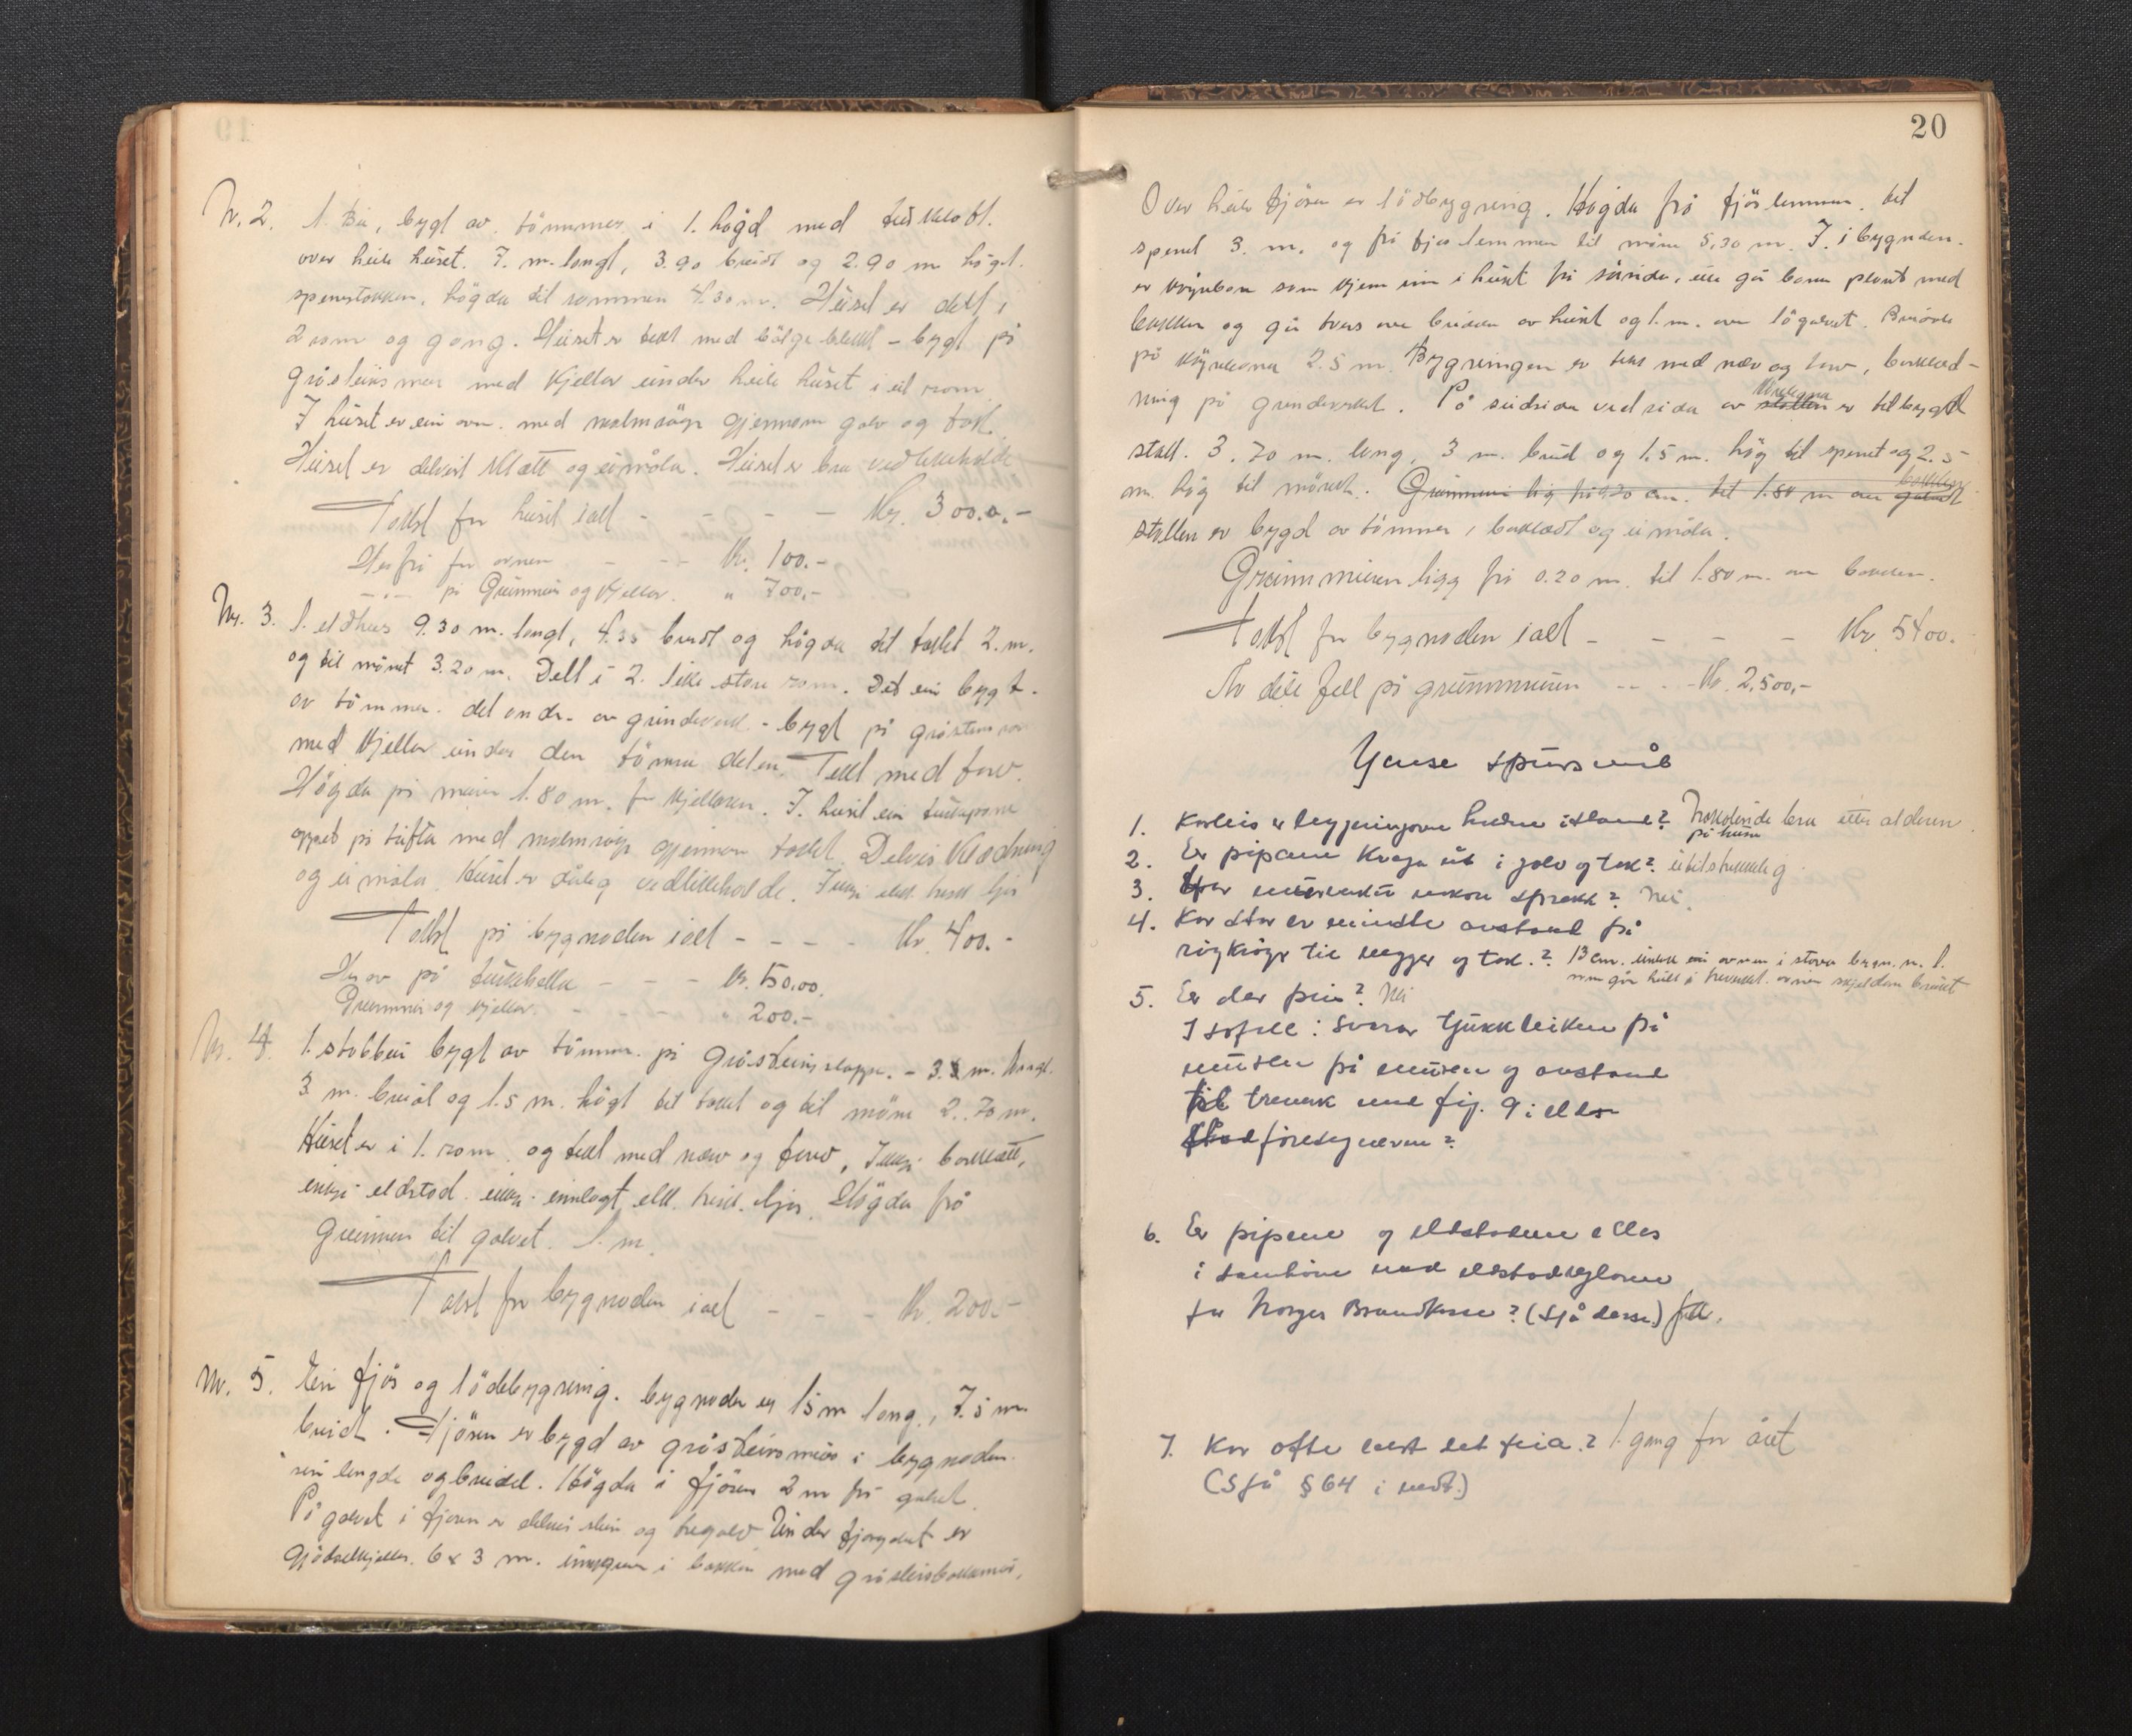 Nr. 2. 1. Bu, bygt av tömmer i 1. högd med
over heile huset. 7. m. langt, 3.90 breidt og 2.90 m högt.
spenstokken, högda til rommen 4.30 m. Huset er delt i
2 rom og gong. Huset er tekt med bölge blekk - bygt på
gråsteins mur med kjellar under heile huset i eit rom.
I huset er ein omn. med malmröyr gjennom golv og tak.
Huset er delvist klætt og ei måla. Huset er bra vedlikeholde
Takst for huset ialt - - - - Kr. 3000.-
Her frå for ovnen - - - Kr. 100.-
-"- på Grunnmur og kjellar. " 700,-
Nr. 3. 1. eldhus 9.30 m. langt, 4.35 breidt og högda til taket 2. m.
og til mönet 3.20 m. Delt i 2. like store rom. Det ein bygt
av tömmer. det andr. av grindverk - bygt på gråstens mur
med kjellar under den tömra delen. Tekt med torv.
Högda på muren 1.80 m. for kjellaren. I. huset ein
oppet på tufta med malmröyr gjennom taket. Delvis klædning
og ei måla. Huset er dårleg vedlikeholde. Inkje elek. lys
Takst på bygnaden ialt - - - - Kr. 400.-
Her av på - - - Kr. 50,00.
Grunnmur og kjellar. - - - " 200.-
Nr. 4. 1. stabbur bygt av tömmer. på gråsteins - 3.5 m. langt.
3 m. breidt og 1.5 m. högt til taket og til möne 2.70 m.
Huset er i 1. rom. og tekt med næv og torv, Inkje
inkje eldstad. inkje innlagt elk. ljos. Högda frå
Grunnen til golvet. 1. m.
Takst for bygnaden ialt - - - Kr. 200.-
Nr. 5. Ein fjös og lödebygning. bygnaden er 15 m lang, 7.5 m
breidt. Fjösen er bygd av gråsteinsmur i bygnaden
sin lengde og breidd. Högda i fjösen 2 m frå golvet.
På golvet i fjösen er delvis stein og tregolv. Under fjösgolvet er
gjödselkjellar. 6 x 3 m. i bakken med gråsteinsbakkmur,
20
Over heile fjösen er lödbygning. Högda frå fjöslemmen til
spenet 3. m. og frå fjöslemmen til möne 5,30 m. I. i bygnaden.
er köyrebru som kjem inn i huset frå sörsida, ein går bruen plant med
bakken og går tvers over breidda av huset og 1. m. over lögolvet. Breidde
på köyrebrua 2.5 m. Bygningen er tekt med næv og torv, bordkled-
ning på grindverket. På sudsida ved sida av stallen köyrebrua er tilbygd
stall. 3.70 m. lang, 3 m. breid og 1.5 m. hög til spenet og 2.5
m. hög til mönet. Grunnmur lig frå 0.20 cm. til 1.80 m over golvet bakken
stallen er bygd av tömmer, bordklædt og ei måla.
Grunnmuren ligg frå 0.20 m. til 1.80 m. over bakken.
Takst for bygnaden ialt - - - - Kr. 5400.
Av dette fell på grunnmuren - - - Kr. 2,500,-
Ymse spursmål
1. Korleis er bygningane haldne istand? bra etter alderen på husa
2. Er pipane kraga ut i golv og tak?
3. Har murverket nokon sprekk? Nei.
4. Kor stor er minste avstand frå
röykröyr til vegger og tak.? 13 cm. ovnen i stova bygn. n. 1.
som går heilt i treverket. ovnen skjeldan brukt
5. Er der peis? Nei
I sofall: Svarar tjukkleiken på
muren og avstand
til treverk med fig. 9 i eldsta
föresegnerne?
6. Er pipene og eldstadene elles
i samhöve med eldstadreglane
for Norges Brandkasse? (Sjå desse)
7. Kor ofte vert det feia? 1. gong for året
(Sjå § 64 i vedt.)